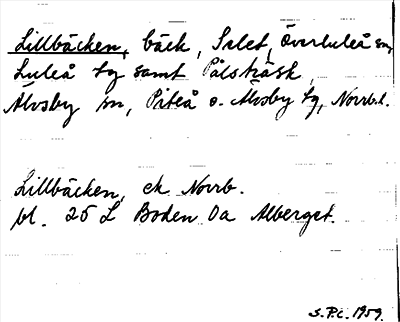 Lillbäcken, bäck, Selet, Överluleå sn,
Luleå tg samt Pålsträsk,
Älvsby sn, Piteå o. Älvsby tg, Norrb.l.
Lillbäcken, ek Norrb.
bl. 25 L Boden 0a Alberget.
S.P.C. 1959.